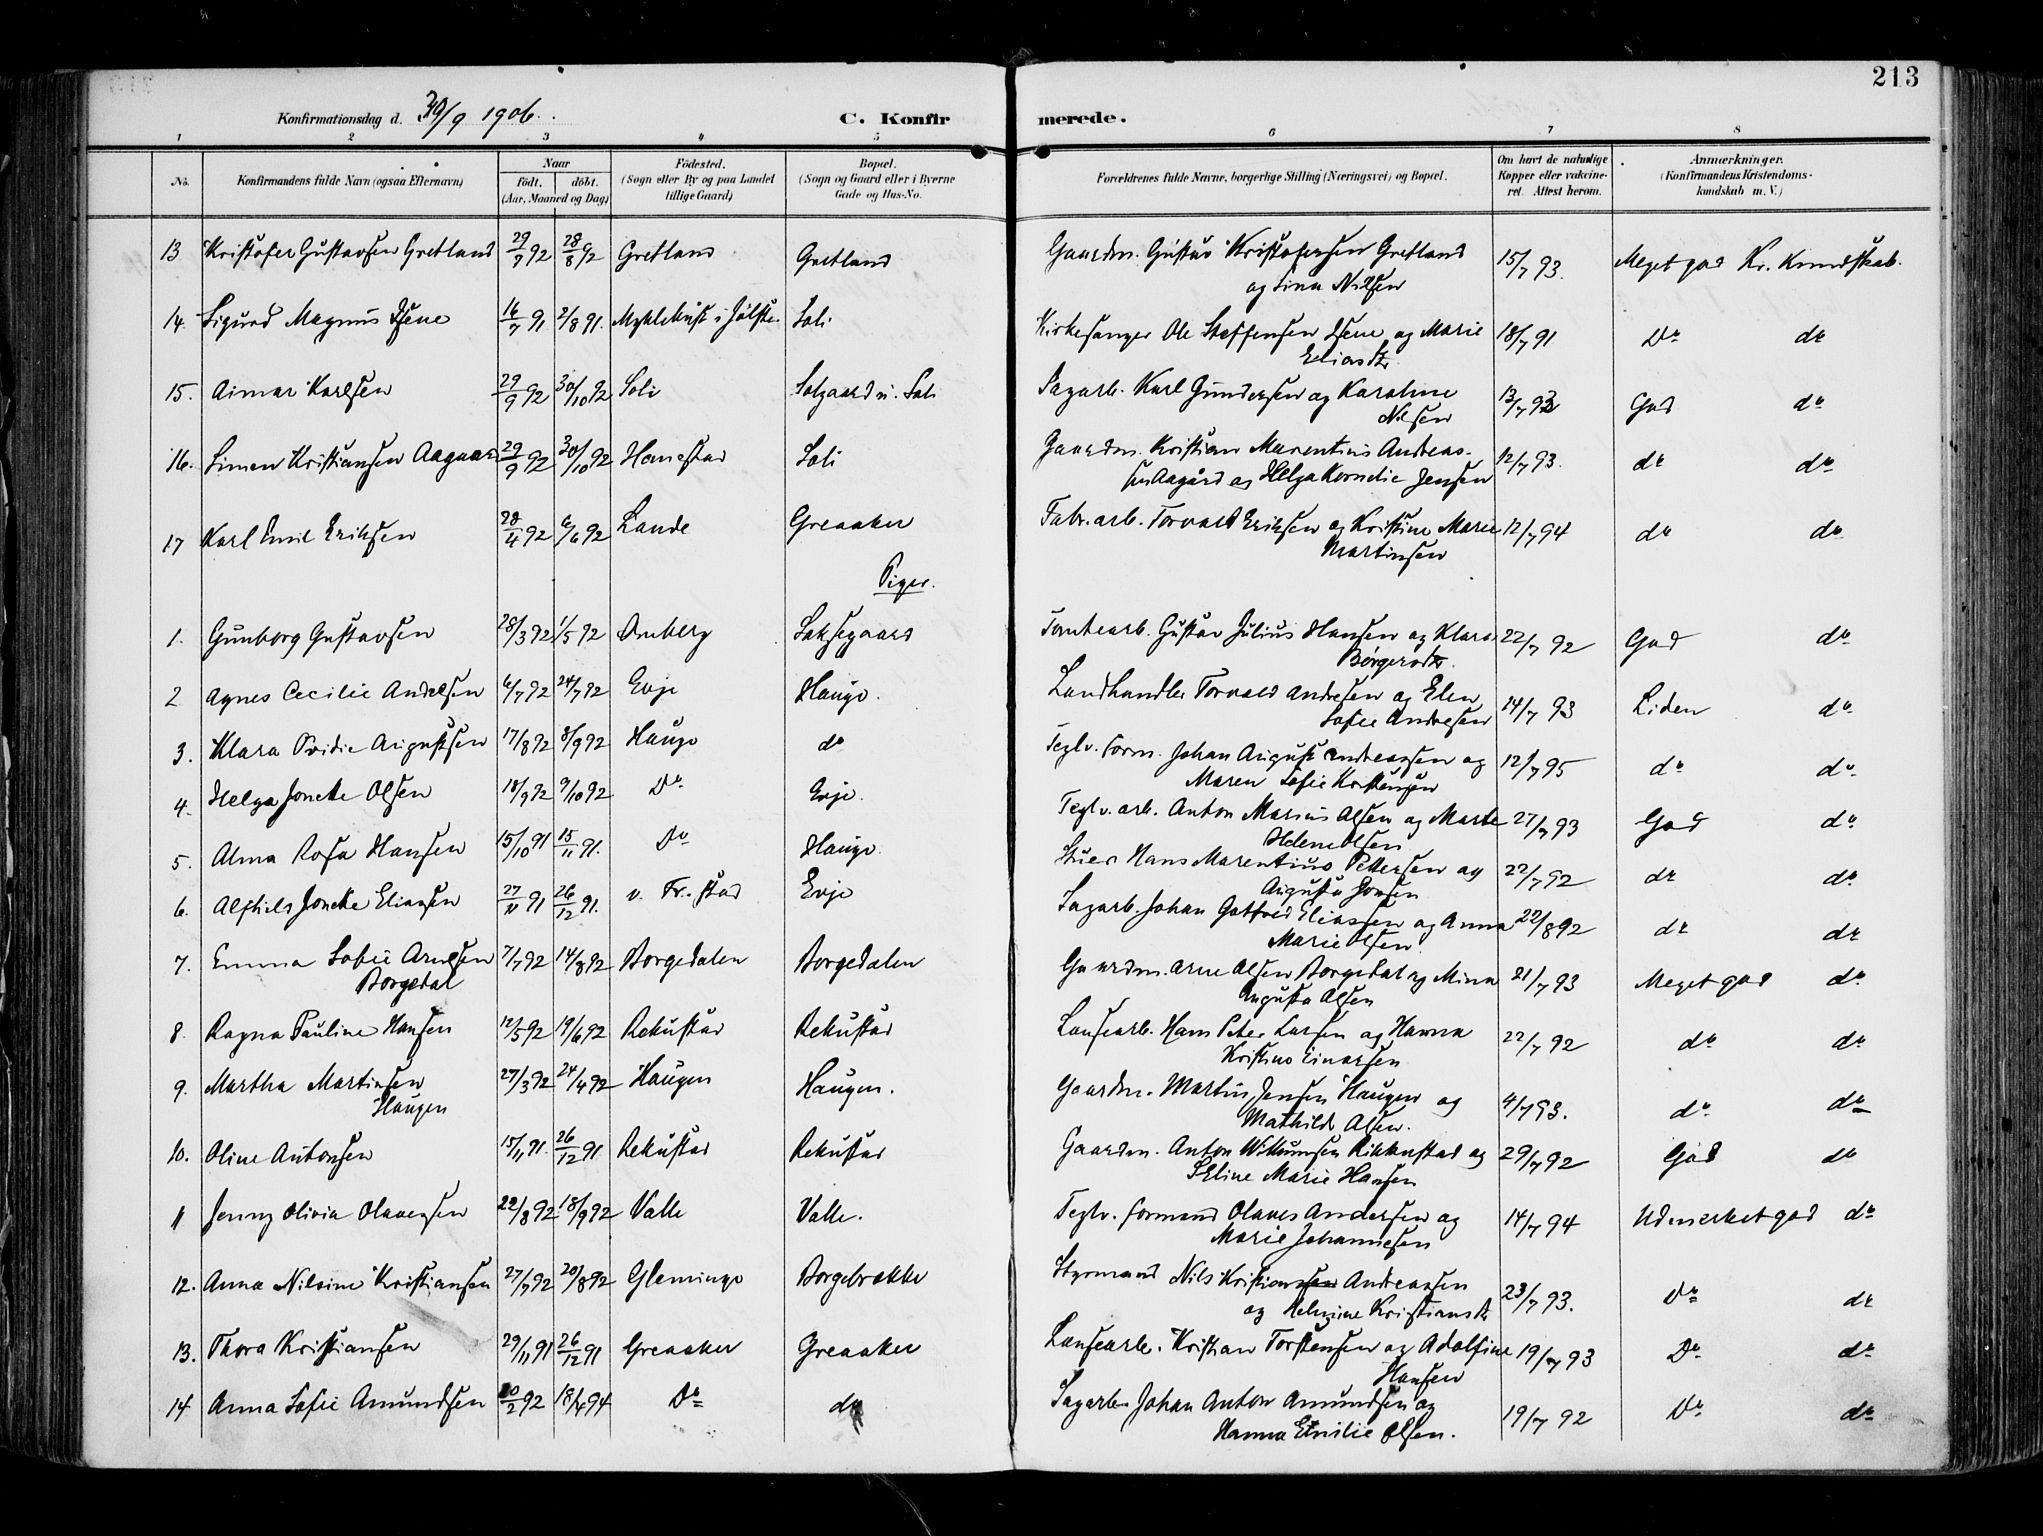 213
Konfirmationsdag d. 30/9 1906.
C. Konfirmerede.
1 2 3 4 5 6 7 8
No. Konfirmandens fulde Navn (ogsaa Efternavn) Naar født. døbt. (Aar, Maaned og Dag) Fødested. (Sogn eller By og paa Landet tillige Gaard) Bopæl. (Sogn og Gaard eller i Byerne Gade og Hus-No. Forældrenes fulde Navne, borgerlige Stilling (Næringsvei) og Bopæl. Om havt de naturlige Kopper eller vakcineret. Attest herom. Anmærkninger. (Konfirmandens Kristendomskundskab m. V.)
13 Kristofer Gustavsen Gretland 29/7 92 28/8 92 Gretland Gretland Gaardm. Gustav Kristofersen Gretland 15/7 93. Meget god Kr. Kundskab.
og Lina Nilsen
14. Sigurd Magnus 16/7 91 2/8 91. i Jølster Soli Kirkesanger Ole Steffensen og Marie 18/7 91 Do do
Eliasdtr.
15. Aimar Karlsen 29/9 92 30/10 92 Soli Solgaard u. Soli Sagarb. Karl Gundersen og Karoline 13/7 93 God do
Nilsen
16. Simen Kristiansen Aagaard 29/9 92 30/10 92 Hanestad Soli Gaardm. Kristian Marentius Andreas- 12/7 93. do do
sen Aagård og Helga Kornelie Jensen
17 Karl Emil Eriksen 28/4 92 6/6 92 Lande Greaaker Fabr.arb. Torvald Eriksen og Kristine Marie 12/7 94 do do
Martinsen
Piger.
1. Gunborg Gustavsen 28/3 92 1/5 92 Amberg Laksegaard Tomtearb. Gustav Julius Hansen og Klara 22/7 92 God do
Børgersdtr.
2 Agnes Cecilie Andresen 6/7 92 24/7 92 Evje Hauge. Landhandler Torvald Andresen og Elen 14/7 93 Liden do
Sofie Andresen
3. Klara Ovidie Augustsen 17/8 92 8/9 92 Hauge do Teglv. Form. Johan August Andreassen og 12/7 95 do do
Maren Sofie Kristensen
4. Helga Jonette Olsen 18/9 92 9/10 92 Do Evje. Teglv.arb. Anton Marius Olsen og Marte 27/7 93 God do
Helene Olsen
5. Alma Rosa Hansen 15/10 91 15/11 91. Do Hauge. Stuer Hans Marentius Pettersen og 22/7 92 do do
Augusta Jonsen
6. Alfhild Jonette Eliassen 27/11 91 26/12 91. v. Fr.stad Evje Sagarb. Johan Gotfred Eliassen og Anna 22/8 92 do do
Marie Olsen
7. Emma Sofie Arnesen 7/7 92 14/8 92 Borgedalen Borgedalen Gaardm. Arne Olsen Borgedal og Mina 21/7 93 Meget god do
Borgedal Augusta Olsen
8. Ragna Pauline Hansen 12/5 92 19/6 92 Rekustad Rekustad Lansearb. Hans Peter Larsen og Hanna 22/7 92 do do
Kristine Einarsen
9. Martha Martinsen 27/3 92 24/4 92 Haugen Haugen. Gaardm. Martin Jensen Haugen og 4/7 93. do do
Haugen Mathilde Olsen.
10. Oline Antonsen 15/11 91. 26/12 91 Rekustad Rekustad Gaardm. Anton Rikkustad og 29/7 92 God do
Eline Marie Hansen
11 Jenny Olivia Olavesen 22/8 92 18/9 92 Valle Valle. Teglv. formand Olaves Andersen og 14/7 94 Udmerket god do
Marie Johannesen
12. Anna Nilsine Kristiansen 27/7 92 20/8 92 Glemminge Borgebrække Styrmand Nils Kristiansen Andreassen 23/7 93. Do do
og Helmine Kristiansdtr
13. Thora Kristiansen 29/11 91 26/12 91 Greaaker Greaaker Lansearb. Kristian Torstensen og Adolfine 19/7 93 Do do
Hansen
14 Anna Sofie Amundsen 20/2 92 18/4 94 Do do Sagarb. Johan Anton Amundsen og 19/7 92 Do do
Hanna Emilie Olsen.